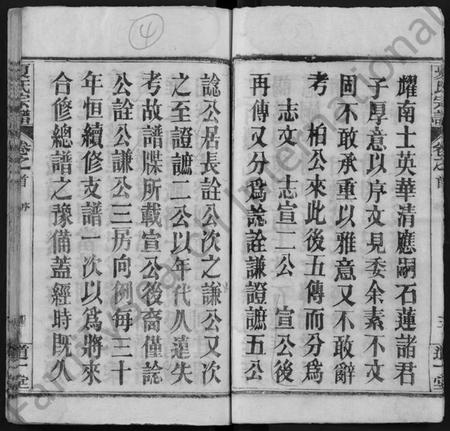 夏氏宗譜 卷之首 序 道一堂
耀南士英華清應嗣石蓮諸君
子厚意以序文見委余素不文
固不敢承重以雅意又不敢辭
考 柏公來此後五傳而分為
志文 志宣二公 宣公後
再傳又分為說詮謙證謶五公
諗公居長詮公次之謙公又次
之至證謶二公以年代久遠失
考故譜牒所載宣公後裔僅說
公詮公謙公三房向例每三十
年恒續修支譜一次以為將來
合修總譜之豫備蓋經時既久
夏氏宗譜 卷之首 序 四 道一堂
④
Family International